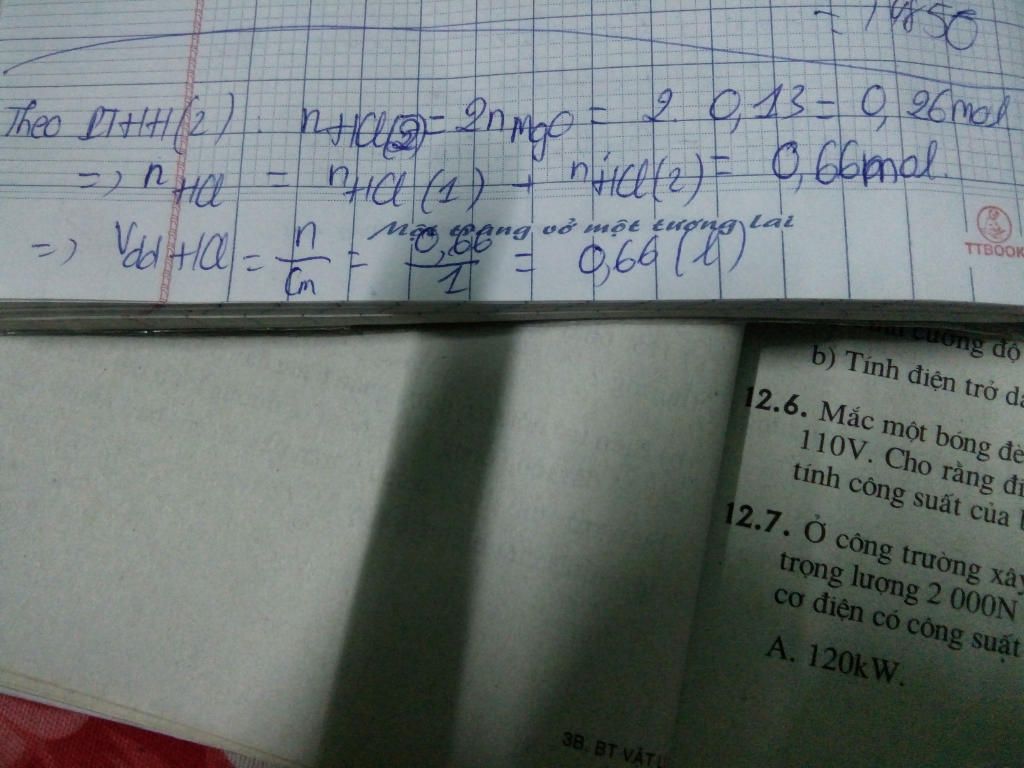 = 1850
Theo PTHH(2) : nHCl(2) = 2nMgO = 2. 0,13 = 0,26mol
=> nHCl = nHCl(1) + nHCl(2) = 0,66mol.
Một trang vở một tương lai
TTBOOK
=> Vdd HCl = n/Cm = 0,66/1 = 0,66 (l)
cường độ
b) Tính điện trở
12.6. Mắc một bóng
110V. Cho rằng
tính công suất của
12.7. Ở công trường xây
trọng lượng 2 000N
cơ điện có công suất
A. 120kW.
3B. BT VẬT